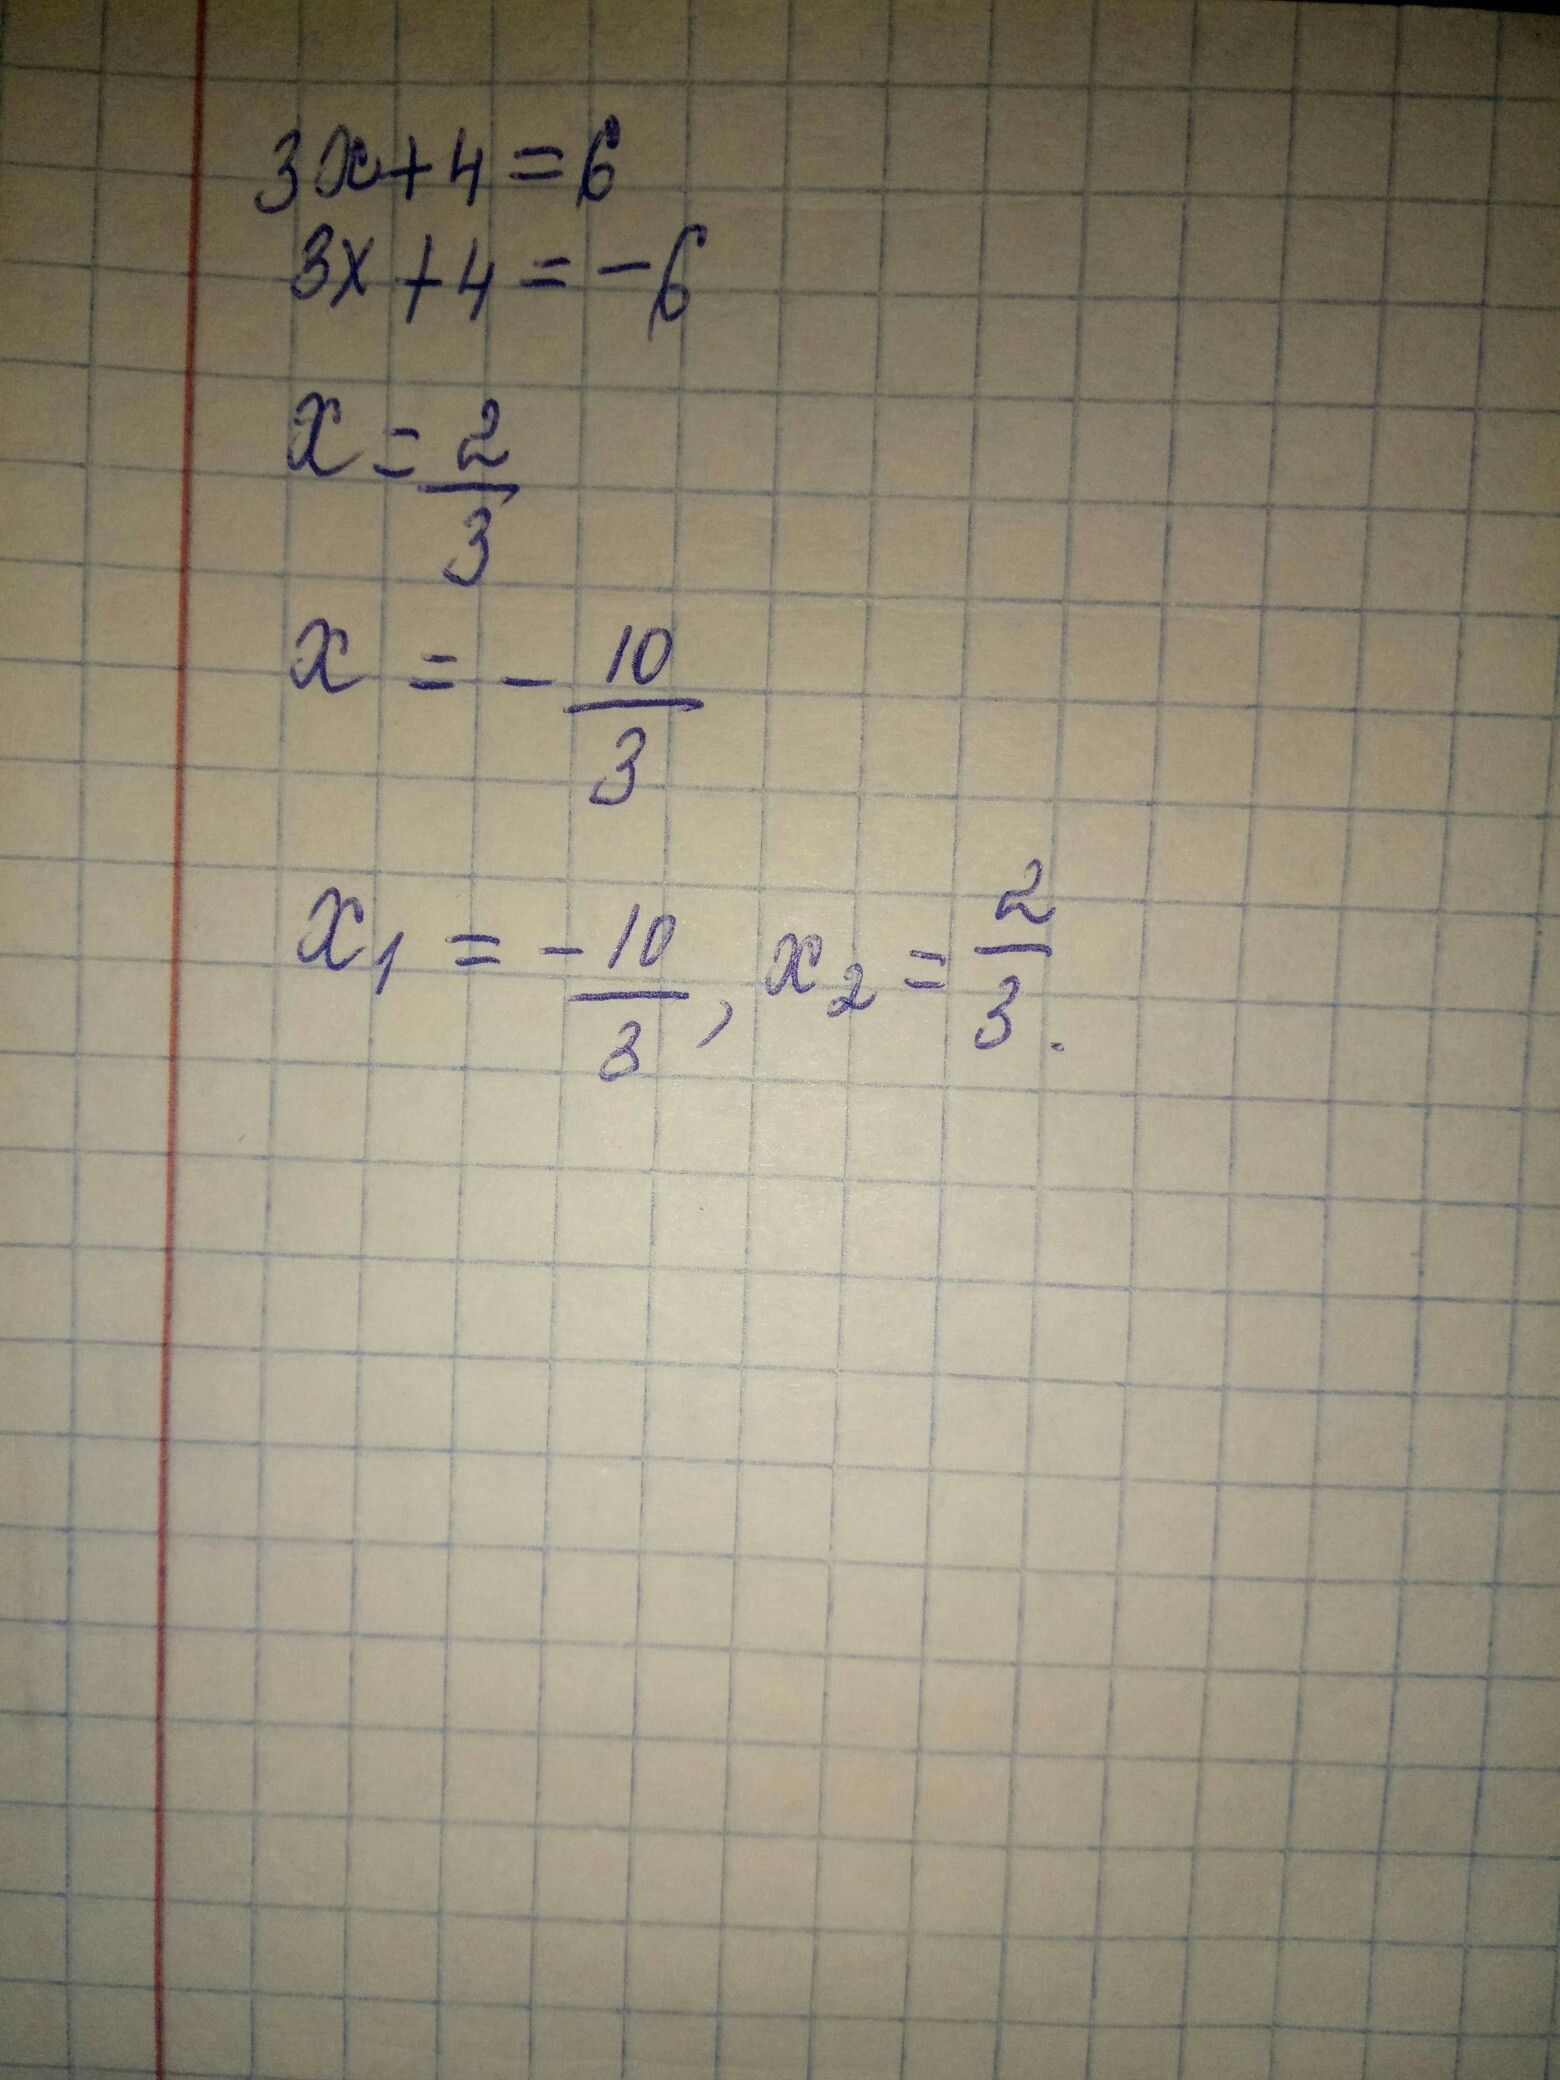 3x+4=6
3x+4=-6
x=2/3
x=-10/3
x₁=-10/3, x₂=2/3.